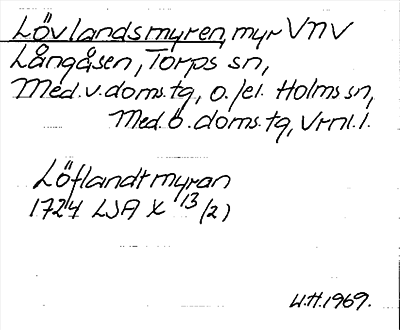 Lövlandsmyren, myr VNV
Långåsen, Torps sn,
Med. v. doms. tg, o./el. Holms sn,
Med. ö. doms. tg, Vrnl. l.
Löflandtmyran
1724 LSA X 13/(2)
U.H. 1969.